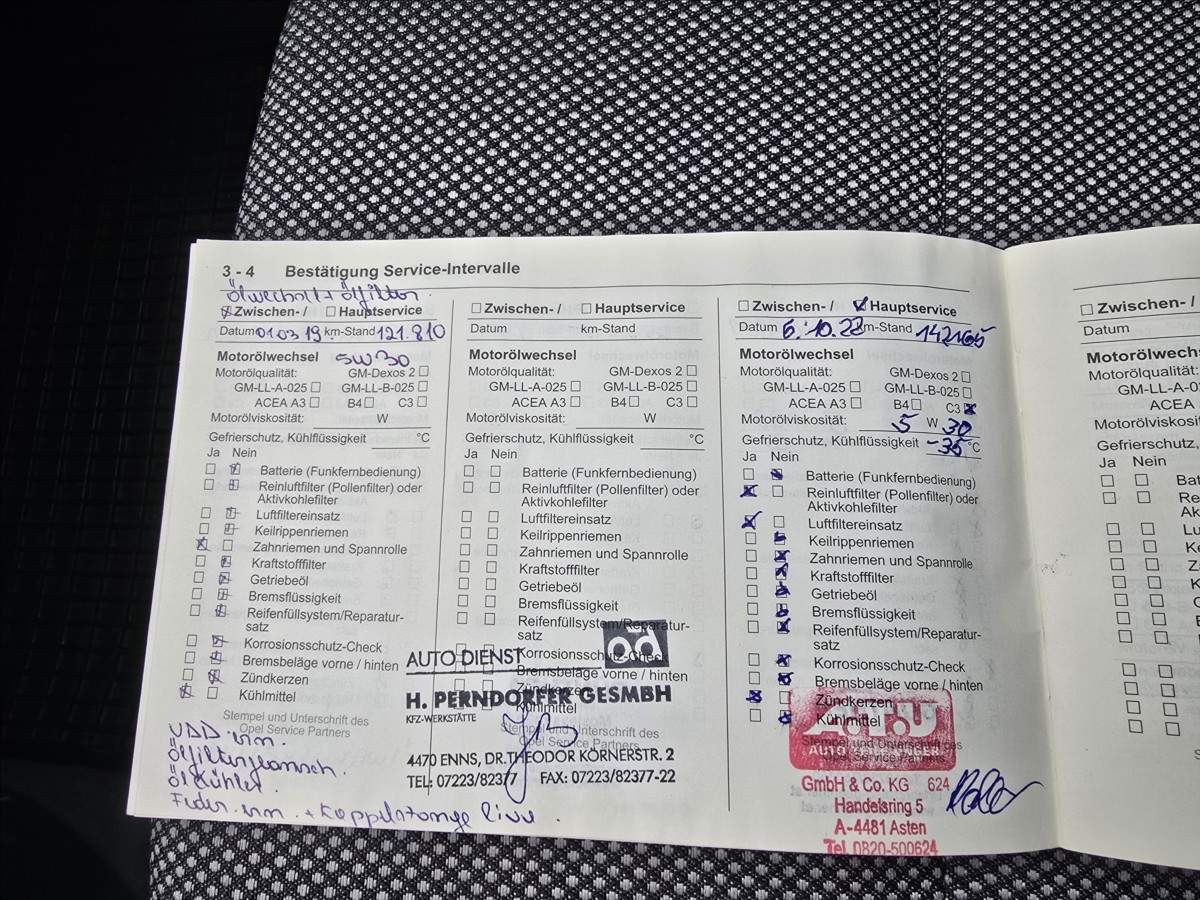 3 - 4 Bestätigung Service-Intervalle
Zwischen- / Hauptservice
Datum 01.03.19 km-Stand 121.810
Motorölwechsel 5W30
Motorölqualität: GM-Dexos 2
GM-LL-A-025 GM-LL-B-025
ACEA A3 B4 C3
Motorölviskosität: W
Gefrierschutz, Kühlflüssigkeit °C
Ja Nein
Batterie (Funkfernbedienung)
Reinluftfilter (Pollenfilter) oder
Aktivkohlefilter
Luftfiltereinsatz
Keilrippenriemen
Zahnriemen und Spannrolle
Kraftstofffilter
Getriebeöl
Bremsflüssigkeit
Reifenfüllsystem/Reparatur-
satz
Korrosionsschutz-Check
Bremsbeläge vorne / hinten
Zündkerzen
Kühlmittel
Stempel und Unterschrift des
Opel Service Partners
Ölkühler
Zwischen- / Hauptservice
Datum km-Stand
Motorölwechsel
Motorölqualität: GM-Dexos 2
GM-LL-A-025 GM-LL-B-025
ACEA A3 B4 C3
Motorölviskosität: W
Gefrierschutz, Kühlflüssigkeit °C
Ja Nein
Batterie (Funkfernbedienung)
Reinluftfilter (Pollenfilter) oder
Aktivkohlefilter
Luftfiltereinsatz
Keilrippenriemen
Zahnriemen und Spannrolle
Kraftstofffilter
Getriebeöl
Bremsflüssigkeit
Reifenfüllsystem/Reparatur-
satz
Korrosionsschutz-Check
Bremsbeläge vorne / hinten
Zündkerzen
Kühlmittel
Stempel und Unterschrift des
Opel Service Partners
AUTO DIENST ad
H. PERNDORFER GESMBH
KFZ-WERKSTÄTTE
4470 ENNS, DR.THEODOR KÖRNERSTR. 2
TEL: 07223/82377 FAX: 07223/82377-22
Zwischen- / Hauptservice
Datum 6.10.22 km-Stand 142165
Motorölwechsel
Motorölqualität: GM-Dexos 2
GM-LL-A-025 GM-LL-B-025
ACEA A3 B4 C3
Motorölviskosität: 5 W 30
Gefrierschutz, Kühlflüssigkeit -35 °C
Ja Nein
Batterie (Funkfernbedienung)
Reinluftfilter (Pollenfilter) oder
Aktivkohlefilter
Luftfiltereinsatz
Keilrippenriemen
Zahnriemen und Spannrolle
Kraftstofffilter
Getriebeöl
Bremsflüssigkeit
Reifenfüllsystem/Reparatur-
satz
Korrosionsschutz-Check
Bremsbeläge vorne / hinten
Zündkerzen
Kühlmittel
Stempel und Unterschrift des
Opel Service Partners
A.T.U
AUTO
GmbH & Co. KG 624
Handelsring 5
A-4481 Asten
Tel. 0820-500624
Zwischen- /
Datum
Motorölwechs
Motorölqualität:
GM-LL-A-025
ACEA
Motorölviskosi
Gefrierschutz,
Ja Nein
Bat
Re
Ak
Lu
Ke
Z
K
G
B
R
s
K